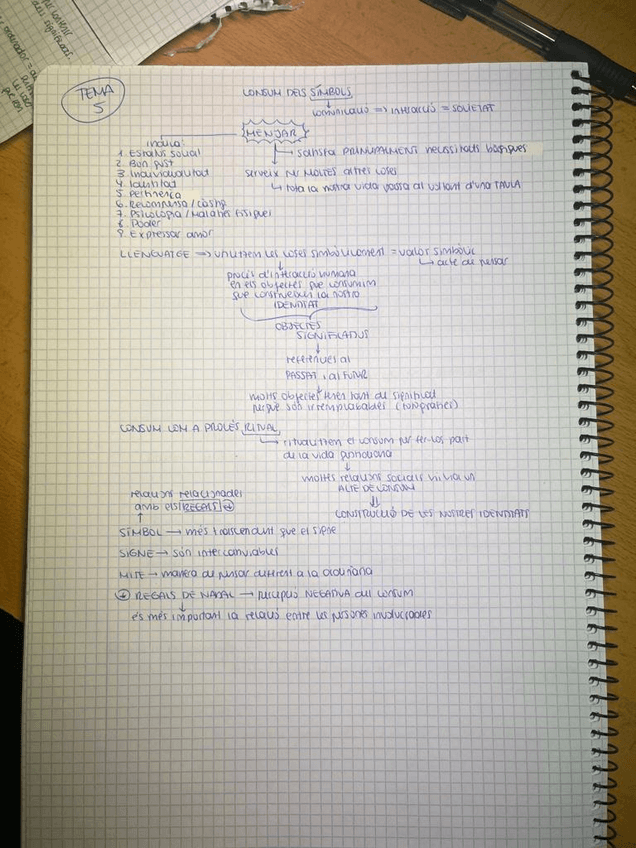 TEMA
5
CONSUM DELS SÍMBOLS
COMUNICACIÓ => INTERACCIÓ = SOCIETAT
MENJAR
satisfà PRINCIPALMENT necessitats bàsiques
serveix per MOLTES altres coses
tota la nostra vida passa al voltant d'una TAULA
indica:
1. Estatus social
2. Bon gust
3. Individualitat
4. Identitat
5. Pertinença
6. Recompensa / càstig
7. Psicologia / Malalties físiques
8. Poder
9. Expressar amor
LLENGUATGE => utilitzem les coses simbòlicament = valor simbòlic
acte de pensar
procés d'interacció humana
en els objectes que consumim
que construeixen la nostra
IDENTITAT
OBJECTES
SIGNIFICADUS
referències al
PASSAT i al FUTUR
molts objectes tenen tant de significat
perquè són irremplaçables (fotografies)
CONSUM COM A PROCÉS RITUAL
ritualitzem el consum per fer-los part
de la vida quotidiana
moltes relacions socials
ACTE DE CONSUM
CONSTRUCCIÓ DE LES NOSTRES IDENTITATS
relacions relacionades
amb els REGALS
SÍMBOL → més trascendent que el signe
SIGNE → són intercanviables
MITE → manera de pensar diferent a la occidental
REGALS DE NADAL → percepció NEGATIVA del consum
és més important la relació entre les persones involucrades